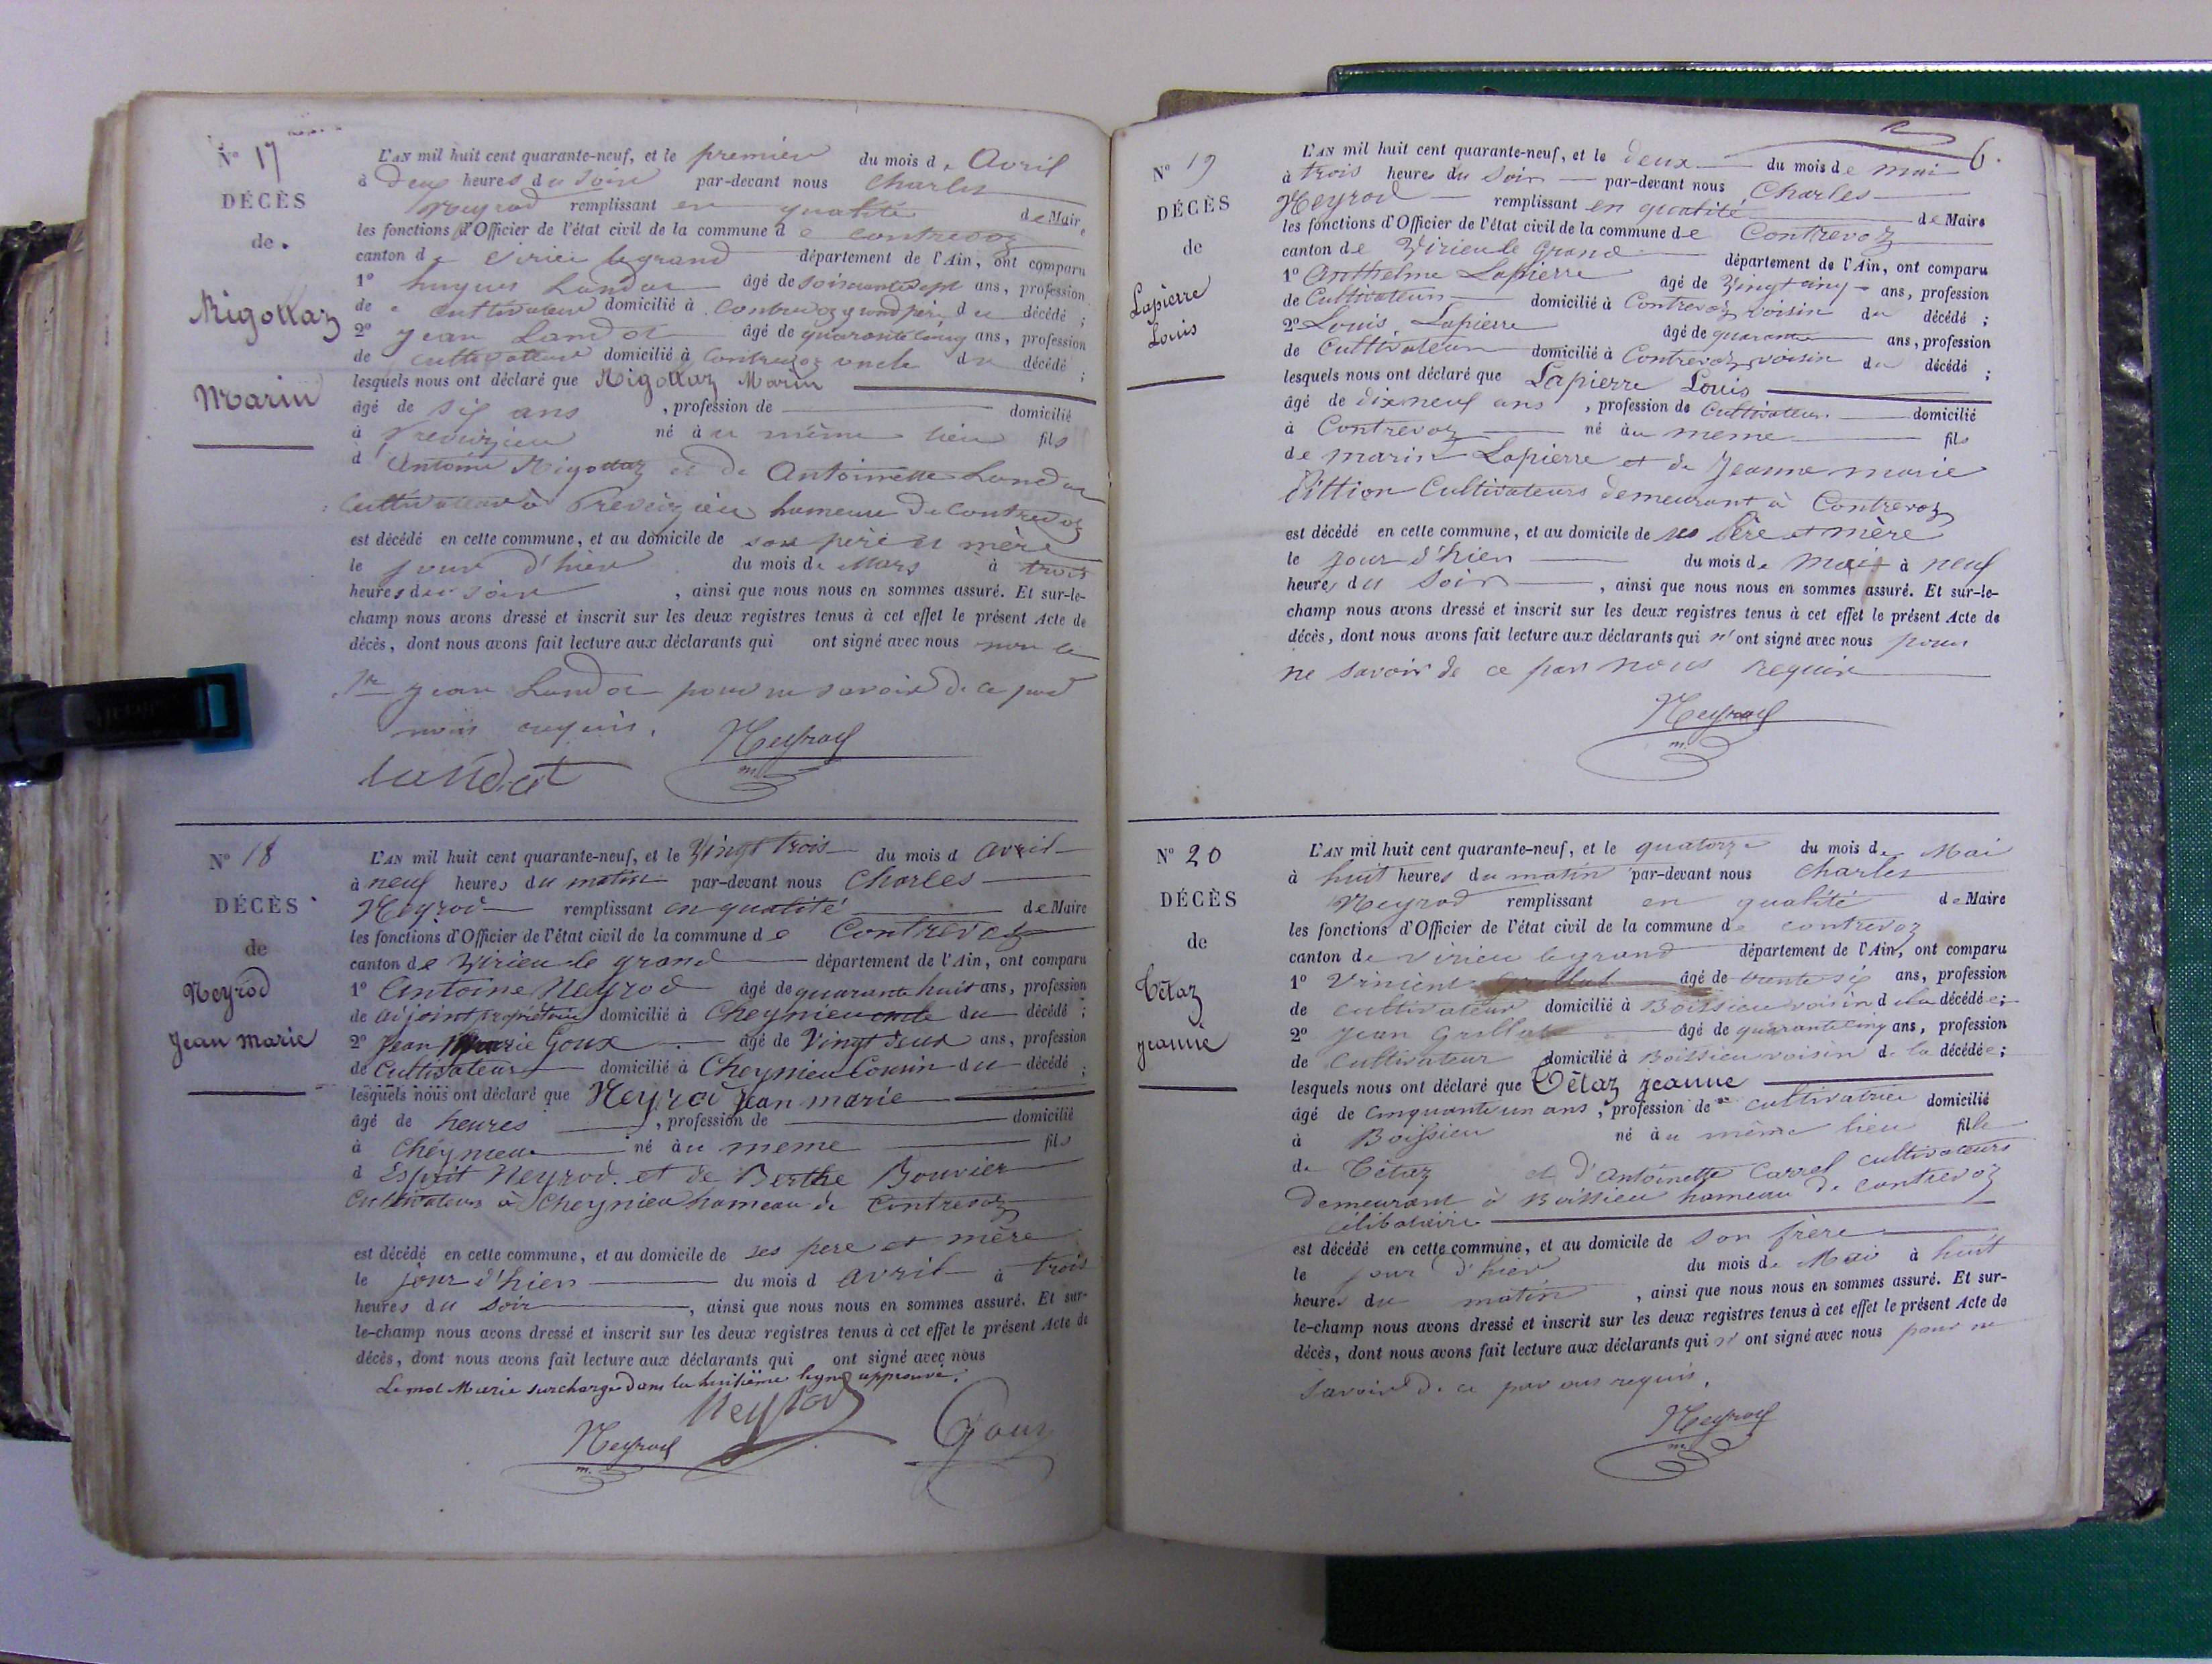 N° 17
DÉCÈS
de
Rigollaz
Marin
L'AN mil huit cent quarante-neuf, et le premier du mois de Avril
à deux heures du soir par-devant nous Charles
Neyrod remplissant en qualité de Maire
les fonctions d'Officier de l'état civil de la commune de contrevoz
canton de Virieu le grand département de l'Ain, ont comparu
1° hugues Landot âgé de soixante sept ans, profession
de cultivateur domicilié à contrevoz grand père du décédé ;
2° Jean Landot âgé de quarante cinq ans, profession
de cultivateur domicilié à Contrevoz oncle du décédé ;
lesquels nous ont déclaré que Rigollaz Marin
âgé de six ans , profession de domicilié
à Preveizieu né à u même lieu fils
d Antoine Rigollaz et de Antoinette Landot
cultivateur à Preveizieu hameau de Contrevoz
est décédé en cette commune, et au domicile de son père et mère
le jour d'hier du mois de Mars à trois
heures du soir , ainsi que nous nous en sommes assuré. Et sur-le-
champ nous avons dressé et inscrit sur les deux registres tenus à cet effet le présent Acte de
décès, dont nous avons fait lecture aux déclarants qui ont signé avec nous non le
Jean Landot pour ne savoir de ce par
nous requis.
Landot Neyrod
N° 18
DÉCÈS
de
Neyrod
Jean marie
L'AN mil huit cent quarante-neuf, et le Vingt trois du mois d avril
à neuf heures du matin par-devant nous Charles
Neyrod remplissant en qualité de Maire
les fonctions d'Officier de l'état civil de la commune de Contrevoz
canton de Virieu le grand département de l'Ain, ont comparu
1° Antoine Neyrod âgé de quarante huit ans, profession
de adjoint propriétaire domicilié à Cheynieu oncle du décédé ;
2° Jean Marie Goux âgé de Vingt deux ans, profession
de Cultivateur domicilié à Cheynieu Cousin du décédé ;
lesquels nous ont déclaré que Neyrod Jean marie
âgé de heures , profession de domicilié
à Cheynieu né à u meme fils
d Esprit Neyrod et de Berthe Bouvier
Cultivateurs à Cheynieu hameau de Contrevoz
est décédé en cette commune, et au domicile de ses pere et mère
le jour d'hier du mois d avril à trois
heures du soir , ainsi que nous nous en sommes assuré. Et sur-
le-champ nous avons dressé et inscrit sur les deux registres tenus à cet effet le présent Acte de
décès, dont nous avons fait lecture aux déclarants qui ont signé avec nous
Le mot Marie surchargé dans la huitième ligne approuvé.
Neyrod Neyrod Goux
6.
N° 19
DÉCÈS
de
Lapierre
Louis
L'AN mil huit cent quarante-neuf, et le deux du mois de mai
à trois heures du soir par-devant nous Charles
Neyrod remplissant en qualité de Maire
les fonctions d'Officier de l'état civil de la commune de Contrevoz
canton de Virieu le Grand département de l'Ain, ont comparu
1° Anthelme Lapierre âgé de Vingt cinq ans, profession
de Cultivateur domicilié à Contrevoz voisin du décédé ;
2° Louis Lapierre âgé de quarante ans, profession
de Cultivateur domicilié à Contrevoz voisin du décédé ;
lesquels nous ont déclaré que Lapierre Louis
âgé de dix neuf ans , profession de Cultivateur domicilié
à Contrevoz né à u meme fils
de marin Lapierre et de Jeanne marie
Dittion Cultivateurs demeurant à Contrevoz
est décédé en cette commune, et au domicile de ses Père et mère
le jour d'hier du mois de mai à neuf
heures du Soir , ainsi que nous nous en sommes assuré. Et sur-le-
champ nous avons dressé et inscrit sur les deux registres tenus à cet effet le présent Acte de
décès, dont nous avons fait lecture aux déclarants qui n' ont signé avec nous pour
ne savoir de ce par nous requir
Neyrod
N° 20
DÉCÈS
de
Tétaz
jeanne
L'AN mil huit cent quarante-neuf, et le quatorze du mois de Mai
à huit heures du matin par-devant nous Charles
Neyrod remplissant en qualité de Maire
les fonctions d'Officier de l'état civil de la commune de contrevoz
canton de Virieu legrand département de l'Ain, ont comparu
1° Vincent Grillat âgé de trente six ans, profession
de cultivateur domicilié à Boissieu voisin d ela décédée ;
2° Jean Grillat âgé de quarante cinq ans, profession
de Cultivateur domicilié à Boissieu voisin de la décédée ;
lesquels nous ont déclaré que Tétaz jeanne
âgé de Cinquante un ans , profession de cultivatrice domicilié
à Boissieu né à u même lieu fille
de Tétaz et d'Antoinette Carrel cultivateurs
Demeurant à Boissieu hameau de contrevoz
célibataire
est décédé en cette commune, et au domicile de son frère
le jour d'hier du mois de Mai à huit
heures du matin , ainsi que nous nous en sommes assuré. Et sur-
le-champ nous avons dressé et inscrit sur les deux registres tenus à cet effet le présent Acte de
décès, dont nous avons fait lecture aux déclarants qui n' ont signé avec nous pour ne
savoir de ce par ous requis.
Neyrod